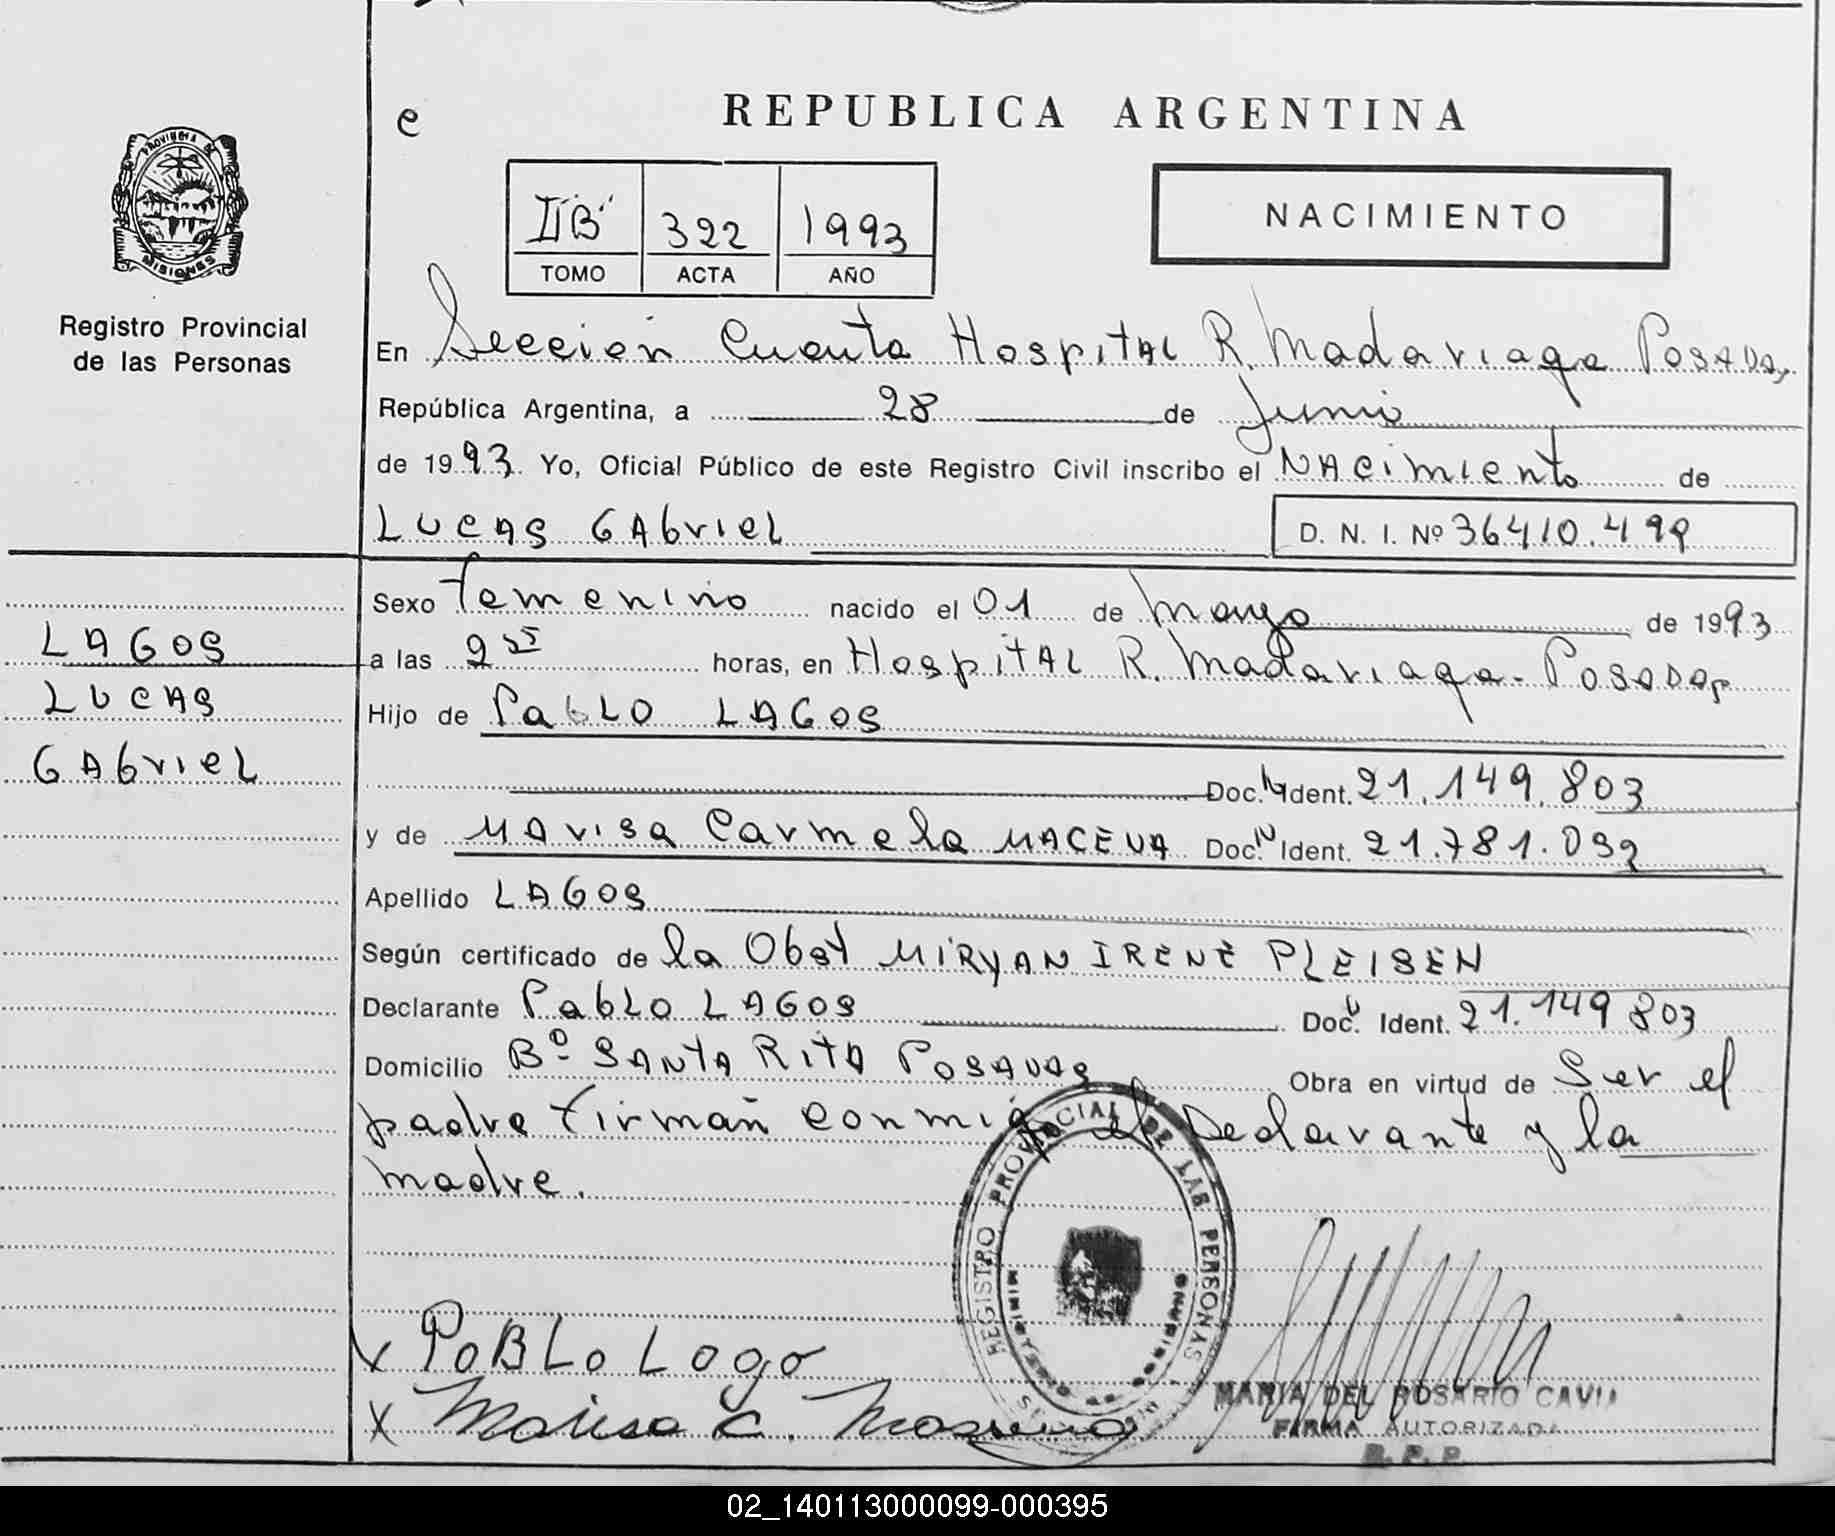 PROVINCIA DE
MISIONES
Registro Provincial
de las Personas
e
REPUBLICA ARGENTINA
II "B" 322 1993
TOMO ACTA AÑO
NACIMIENTO
En Sección Cuarta Hospital R. Madariaga Posadas,
República Argentina, a 28 de Junio
de 1993 Yo, Oficial Público de este Registro Civil inscribo el Nacimiento de
Lucas Gabriel
D. N. I. Nº 36410.499
LAGOS
Lucas
Gabriel
Sexo Femenino nacido el 01 de Mayo de 1993
a las 2 horas, en Hospital R. Madariaga - Posadas
Hijo de Pablo LAGOS
Doc. N Ident. 21.149.803
y de Marisa Carmela Doc. N Ident. 21.781.092
Apellido LAGOS
Según certificado de la Obst MIRYAN IRENE PLEISEN
Declarante Pablo LAGOS Doc. N Ident. 21.149 803
Domicilio Bº SANTA RITA Posadas Obra en virtud de Ser el
padre Firman conmigo el Declarante y la
madre.
REGISTRO PROVINCIAL DE LAS PERSONAS
x PABLO Lago
x Marisa C.
MARIA DEL ROSARIO CAVIA
FIRMA AUTORIZADA
R. P. P.
02_140113000099-000395